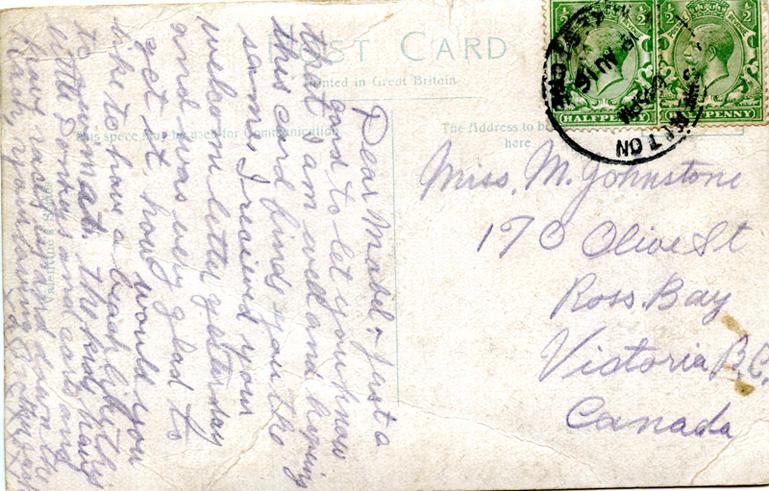 POST CARD
Printed in Great Britain
This space may be used for Communication
The Address to be
here
HALFPENNY
HALFPENNY
Dear Mabel, Just a
card to let you know
that I am well and hoping
this card finds you the
same, I recieved your
welcome letter yesterday
and was very glad to
get it, how would you
like to have a beach like this
to
the kids have
the Donkeys and carts and
have races up and down the
Miss. M. Johnstone
170 Olive St
Ross. Bay
Victoria B.C.
Canada